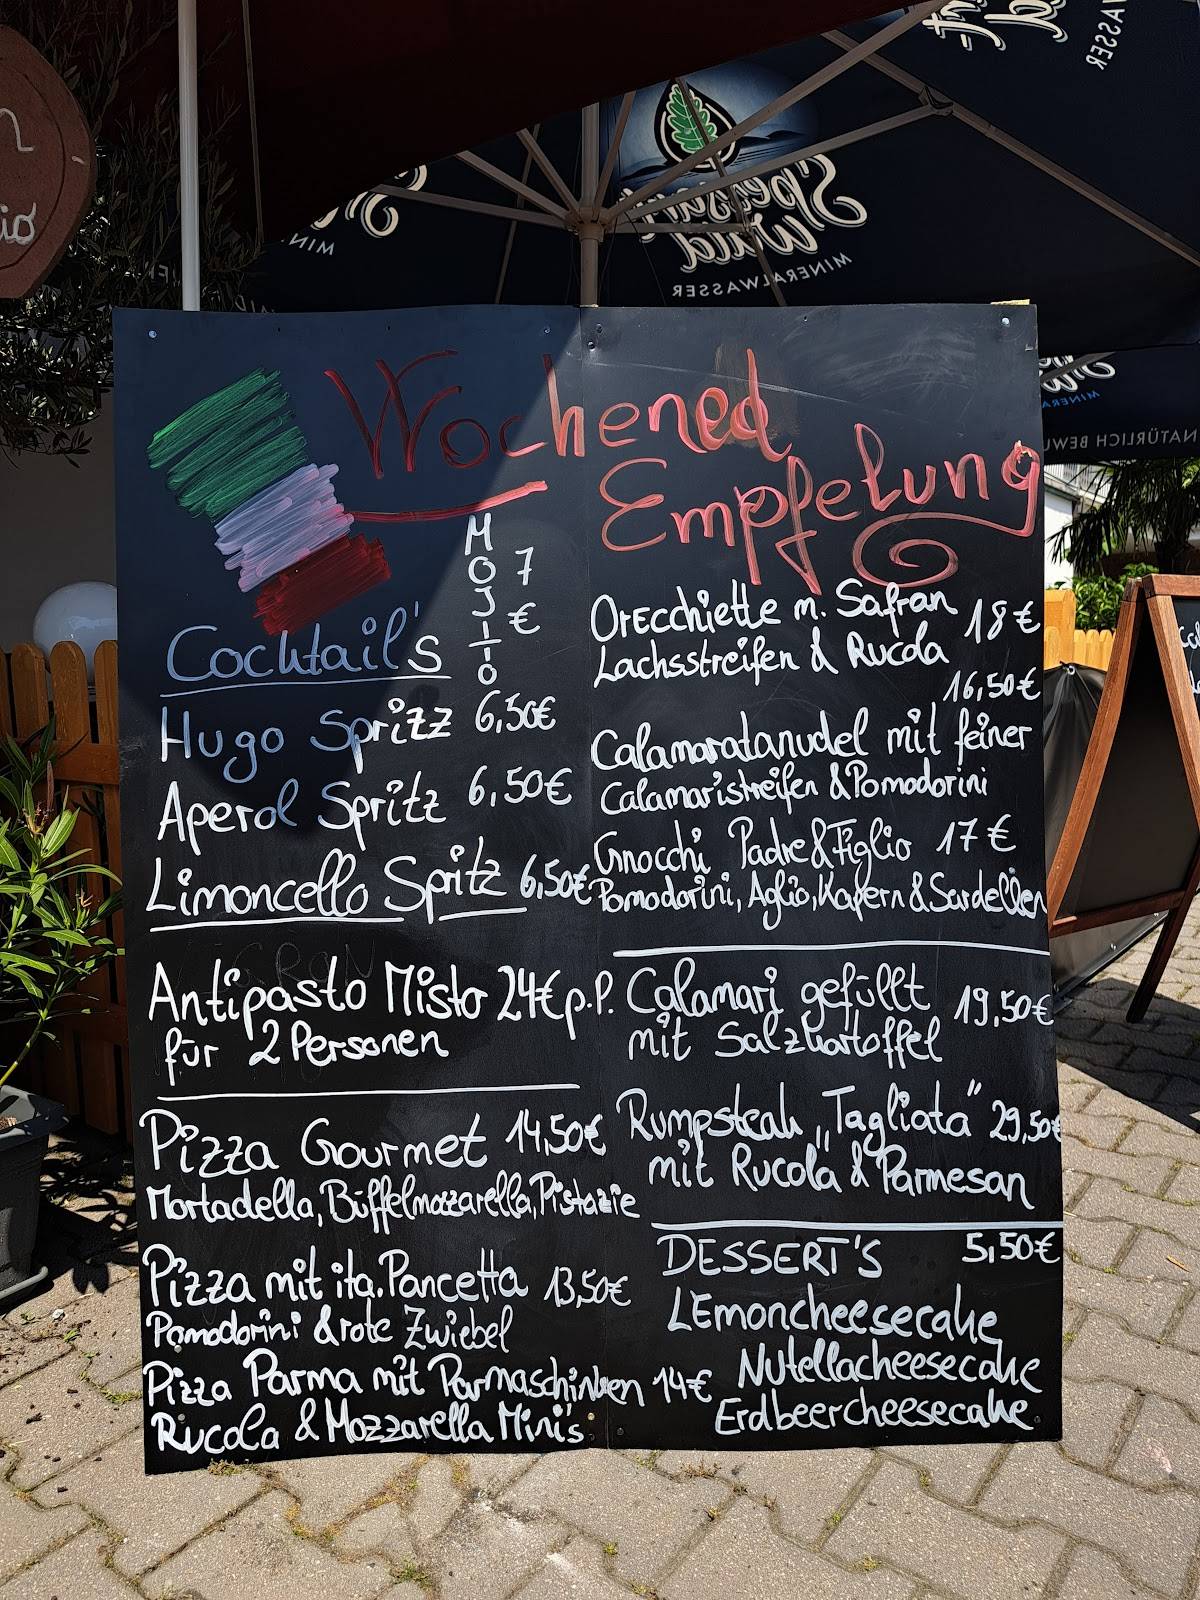 Spessart
Wald
MINERALWASSER
NATÜRLICH
Wochened
Empfelung
MOJITO 7 €
Cocktail's
Hugo Spritz 6,50€
Aperol Spritz 6,50€
Limoncello Spritz 6,50€
Antipasto Misto 24€ p.P.
für 2 Personen
Pizza Gourmet 14,50€
Mortadella, Büffelmozzarella, Pistazie
Pizza mit ita. Pancetta 13,50€
Pomodorini & rote Zwiebel
Pizza Parma mit Parmaschinken 14€
Rucola & Mozzarella Mini's
Orecchiette m. Safran 18€
Lachsstreifen & Rucola
16,50€
Calamaratanudel mit feiner
Calamaristreifen & Pomodorini
Gnocchi Padre & Figlio 17€
Pomodorini, Aglio, Kapern & Sardellen
Calamari gefüllt 19,50€
mit Salzkartoffel
Rumpsteak „Tagliata" 29,50€
mit Rucola & Parmesan
DESSERT'S 5,50€
LEmoncheesecake
Nutellacheesecake
Erdbeercheesecake